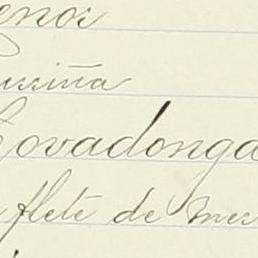 enos
Covadonga
flete de mer